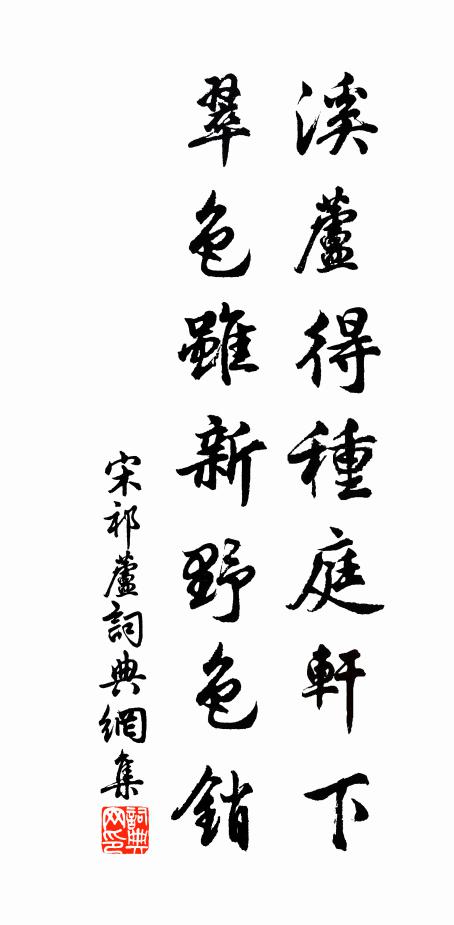 溪蘆得種庭軒下
翠色雖新野色銷
宋祁蘆詞典網集
詞典網印